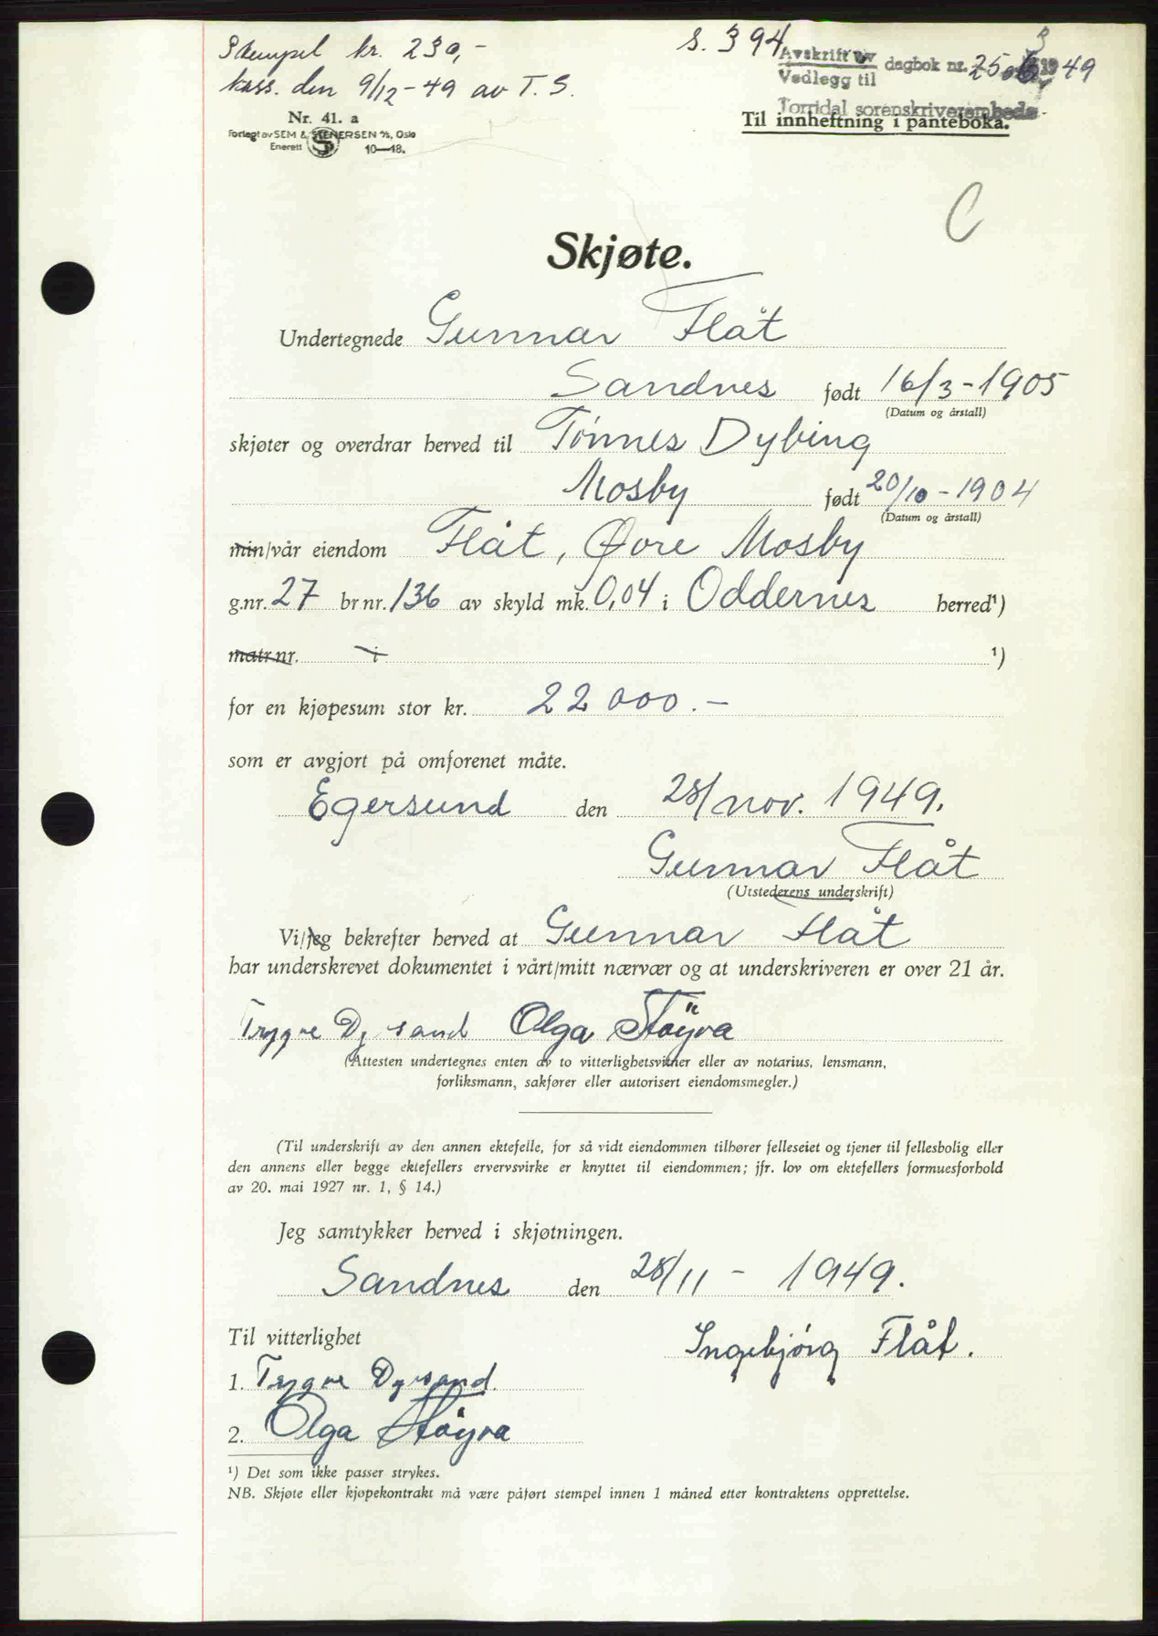 Stempel kr. 230,-
kass. den 9/12-49 av T. S.
S. 394
Avskrift av
Vedlegg til
dagbok nr. 49
Torridal sorenskriverembede
Nr. 41. a
Forlegt av SEM & STENERSEN A/S, Oslo
Enerett 10—48.
Til innheftning i panteboka.
C
Skjøte.
Undertegnede Gunnar Flåt
Sandnes født 16/3-1905
(Datum og årstall)
skjøter og overdrar herved til Tønnes Dybing
Mosby født 20/10-1904
(Datum og årstall)
min/vår eiendom Flåt, Øvre Mosby
g.nr. 27 br nr. 136 av skyld mk. 0,04 i Oddernes herred¹)
matr.nr. i ¹)
for en kjøpesum stor kr. 22 000.-
som er avgjort på omforenet måte.
Egersund den 28/nov. 1949.
Gunnar Flåt
(Utstederens underskrift)
Vi/jeg bekrefter herved at Gunnar Flåt
har underskrevet dokumentet i vårt/mitt nærvær og at underskriveren er over 21 år.
Trygve Dysand Olga Støyva
(Attesten undertegnes enten av to vitterlighetsvitner eller av notarius, lensmann,
forliksmann, sakfører eller autorisert eiendomsmegler.)
(Til underskrift av den annen ektefelle, for så vidt eiendommen tilhører felleseiet og tjener til fellesbolig eller
den annens eller begge ektefellers ervervsvirke er knyttet til eiendommen; jfr. lov om ektefellers formuesforhold
av 20. mai 1927 nr. 1, § 14.)
Jeg samtykker herved i skjøtningen.
Sandnes den 28/11 - 1949.
Til vitterlighet
Ingebjørg Flåt.
1. Trygve Dysand.
2. Olga Støyva
¹) Det som ikke passer strykes.
NB. Skjøte eller kjøpekontrakt må være påført stempel innen 1 måned etter kontraktens opprettelse.